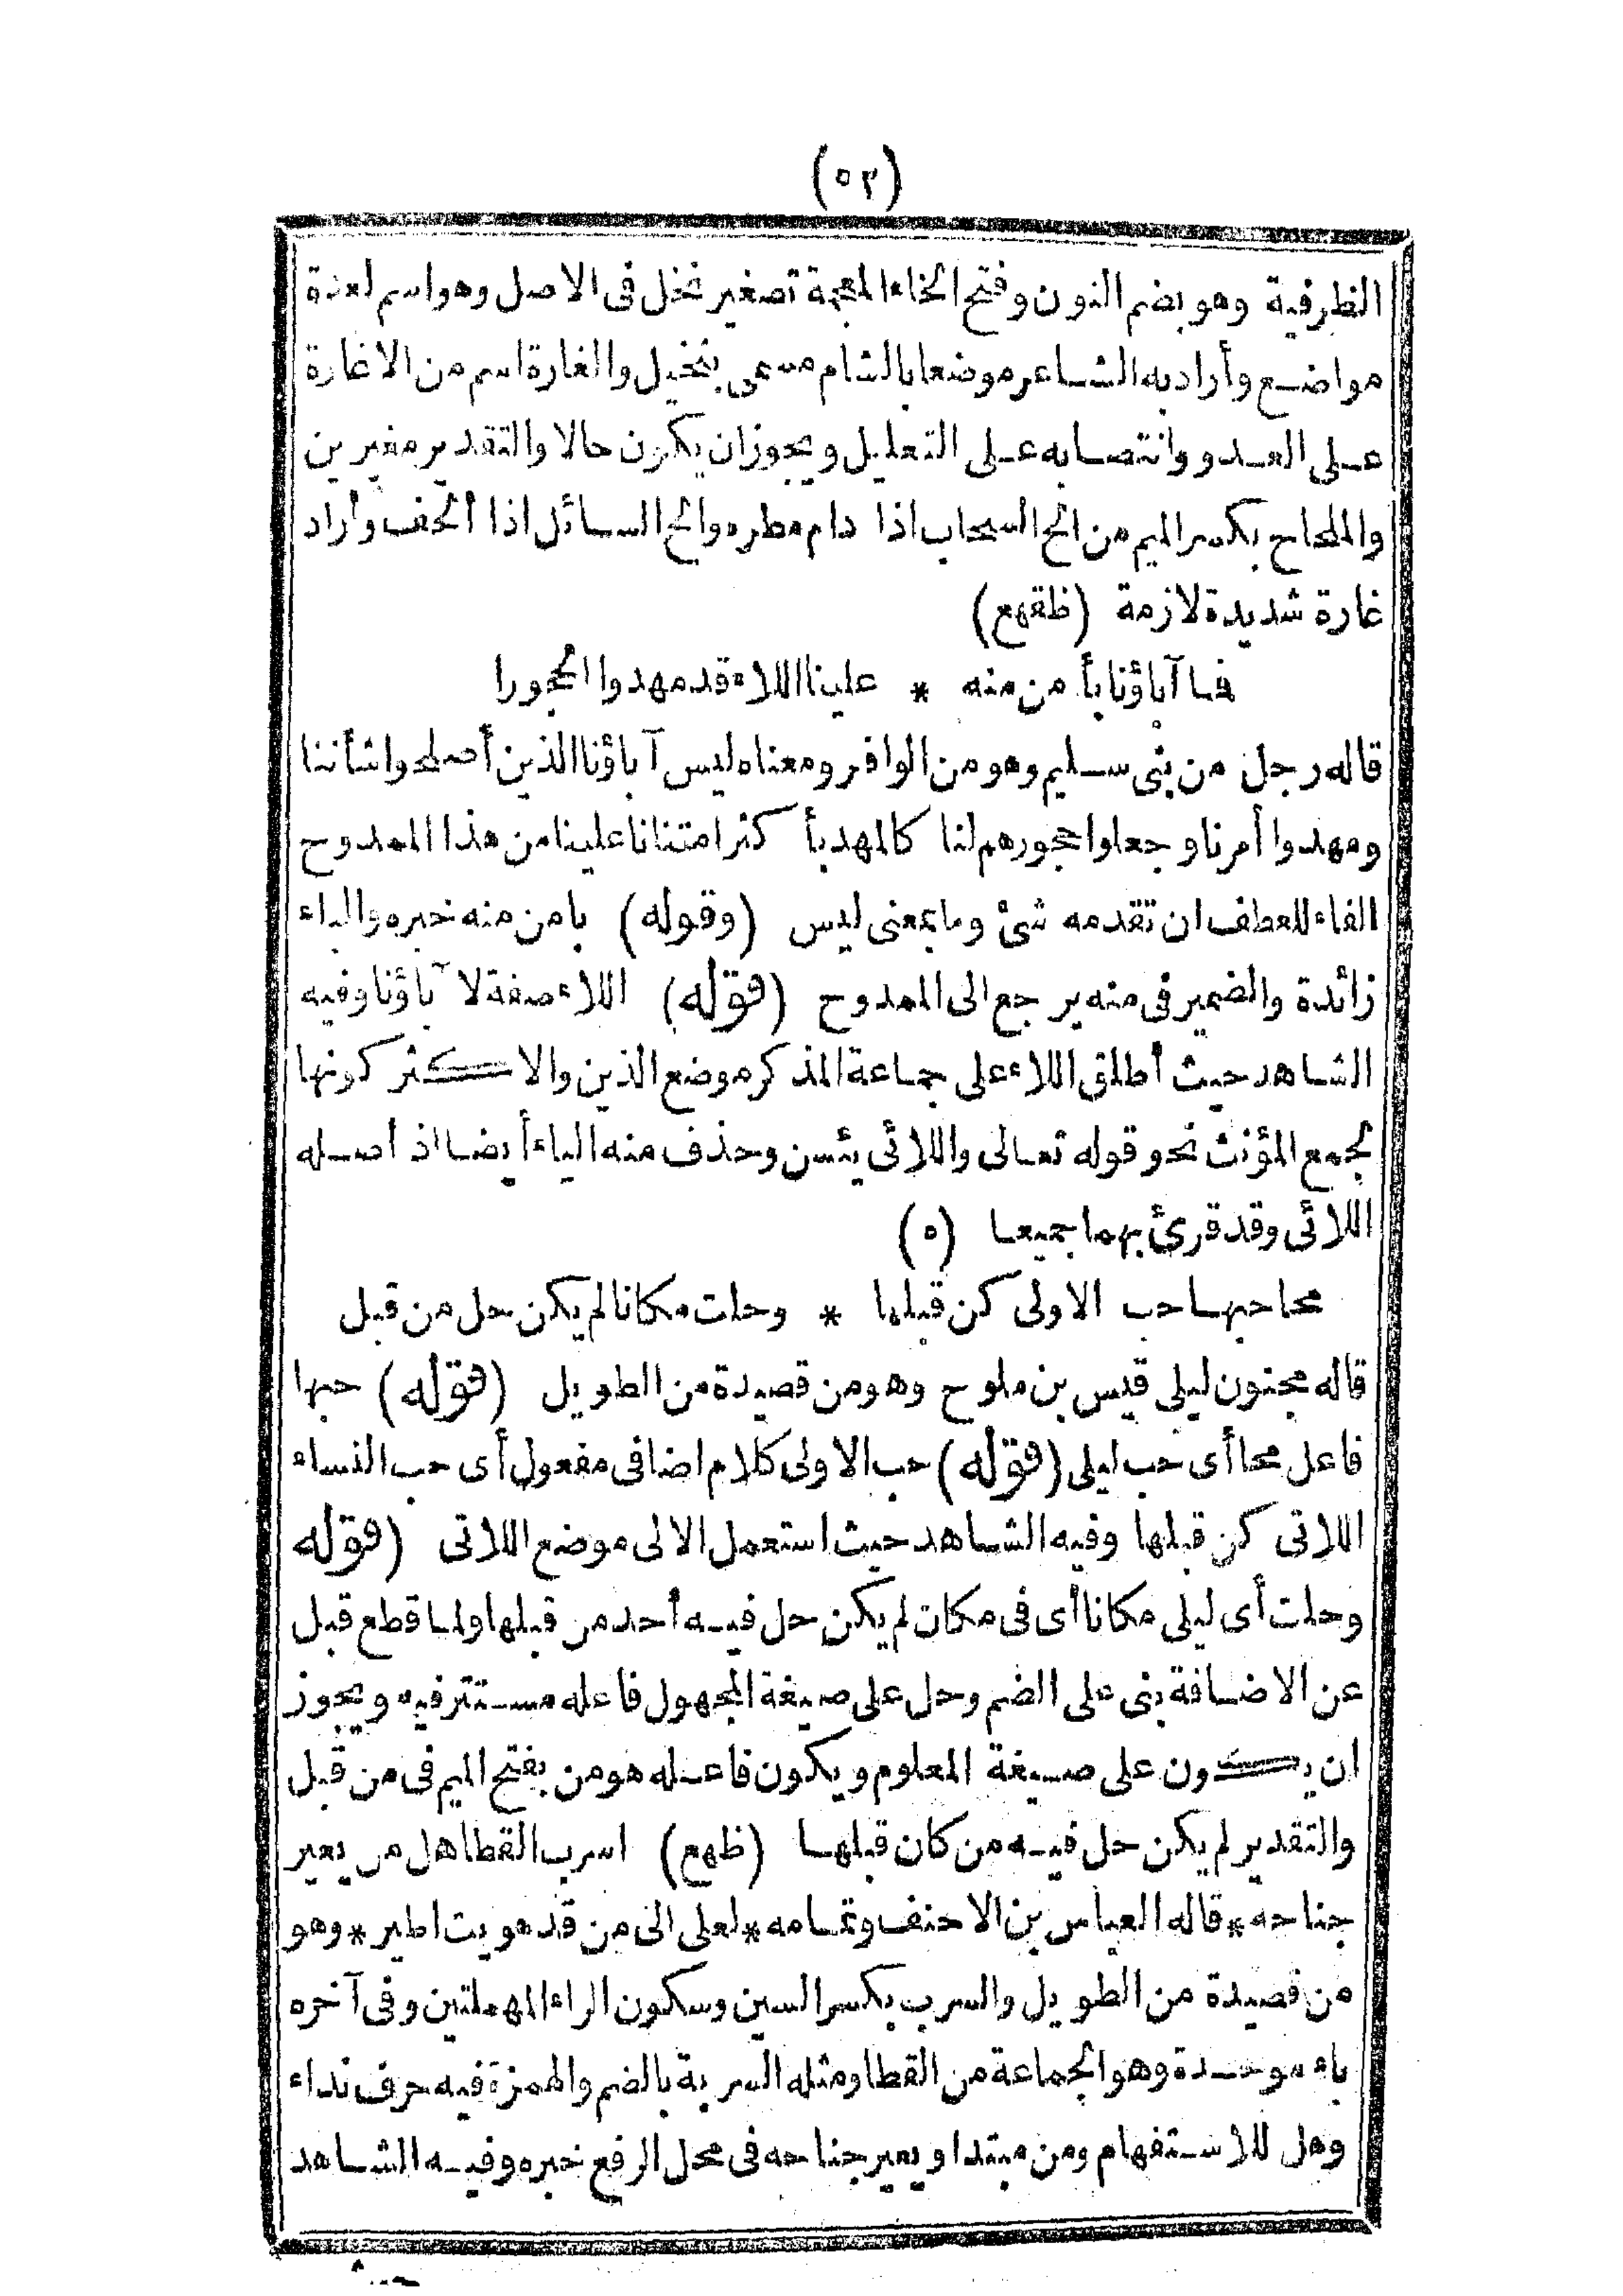 (٥٣)
الظرفية وهو بضم النون وفتح الخاء المعجمة تصغير نخل فى الاصل وهو اسم لعدة
مواضع وأراد به الشاعر موضعا بالشام مسمى بنخيل والغارة اسم من الاغارة
على العدو وانتصابه على التعليل ويجوز ان يكون حالا والتقدير مغيرين
والملحاح بكسر الميم من الح السحاب اذا دام مطره والح السائل اذا ألحف وأراد
غارة شديدة لازمة (ظقهع)
فما آباؤنا بأمن منه * علينا اللاء قد مهدوا الحجورا
قاله رجل من بنى سليم وهو من الوافر ومعناه ليس آباؤنا الذين أصلحوا شأننا
ومهدوا أمرنا وجعلوا حجورهم لنا كالمهد بأ كثر امتنانا علينا من هذا الممدوح
الفاء للعطف ان تقدمه شئ وما بمعنى ليس (وقوله) بامن منه خبره والباء
زائدة والضمير فى منه يرجع الى الممدوح (قوله) اللاء صفة لا آباؤنا وفيه
الشاهد حيث أطلق اللاء على جماعة المذكر موضع الذين والاكثر كونها
لجمع المؤنث نحو قوله تعالى واللائى يئسن وحذف منه الياء أيضا اذ أصله
اللائى وقد قرئ بهما جميعا (ه)
محا حبها حب الاولى كن قبلها * وحلت مكانا لم يكن حل من قبل
قاله مجنون ليلى قيس بن ملوح وهو من قصيدة من الطويل (قوله) حبها
فاعل محا أى حب ليلى (قوله) حب الاولى كلام اضافى مفعول أى حب النساء
اللاتى كن قبلها وفيه الشاهد حيث استعمل الالى موضع اللاتى (قوله
وحلت أى ليلى مكانا أى فى مكان لم يكن حل فيه أحد من قبلها ولما قطع قبل
عن الاضافة بنى على الضم وحل على صيغة المجهول فاعله مستتر فيه ويجوز
ان يكون على صيغة المعلوم ويكون فاعله هو من بفتح الميم فى من قبل
والتقدير لم يكن حل فيه من كان قبلها (ظهع) اسرب القطا هل من يعير
جناحه * قاله العباس بن الاحنف وتمامه * لعلى الى من قد هويت اطير * وهو
من قصيدة من الطويل والسرب بكسر السين وسكون الراء المهملتين وفى آخره
باء موحدة وهو الجماعة من القطا ومثله السربة بالضم والهمزة فيه حرف نداء
وهل للاستفهام ومن مبتدا ويعير جناحه فى محل الرفع خبره وفيه الشاهد
حيث